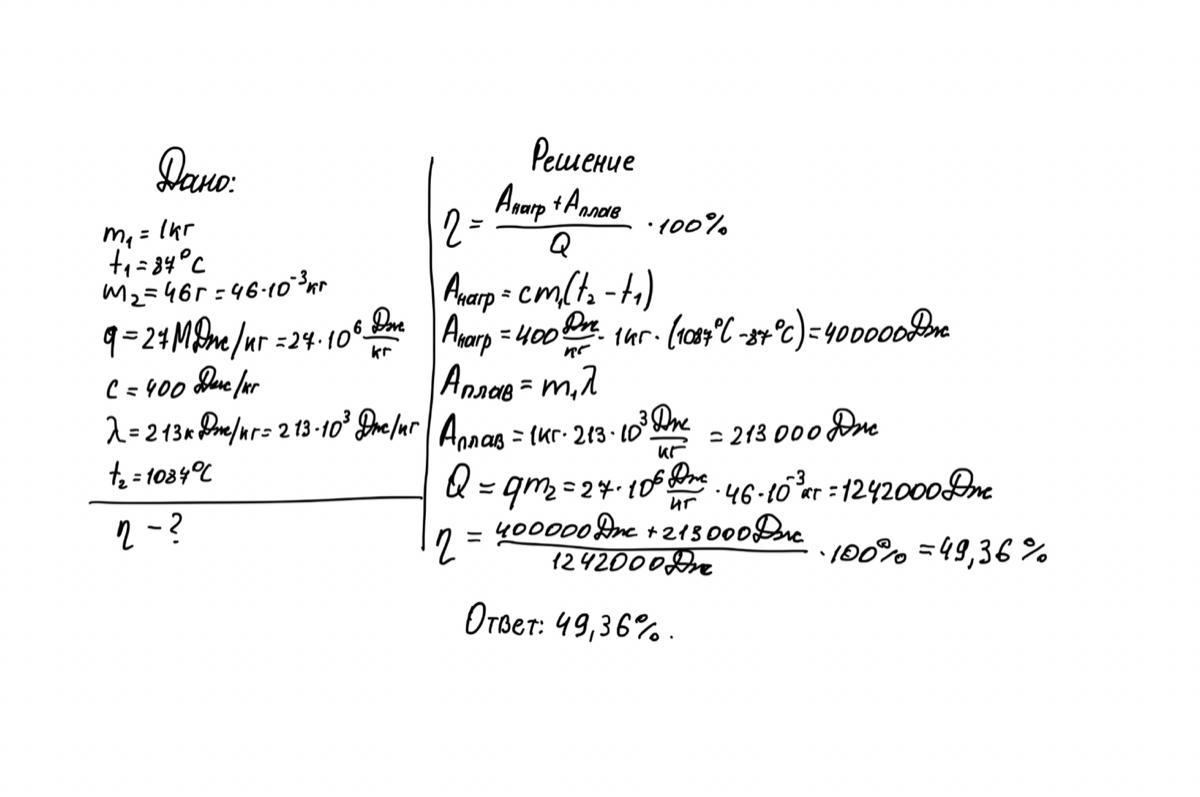 Дано:
m₁ = 1кг
t₁ = 87°C
m₂ = 46г = 46·10⁻³кг
q = 27МДж/кг = 27·10⁶ Дж/кг
c = 400 Дж/кг
λ = 213кДж/кг = 213·10³ Дж/кг
t₂ = 1087°C
η – ?
Решение
η = (Aнагр + Aплав)/Q · 100%
Aнагр = cm₁(t₂ – t₁)
Aнагр = 400 Дж/кг · 1кг · (1087°C – 87°C) = 400000Дж
Aплав = m₁λ
Aплав = 1кг · 213·10³ Дж/кг = 213000Дж
Q = qm₂ = 27·10⁶ Дж/кг · 46·10⁻³кг = 1242000Дж
η = (400000Дж + 213000Дж)/1242000Дж · 100% = 49,36%
Ответ: 49,36%.